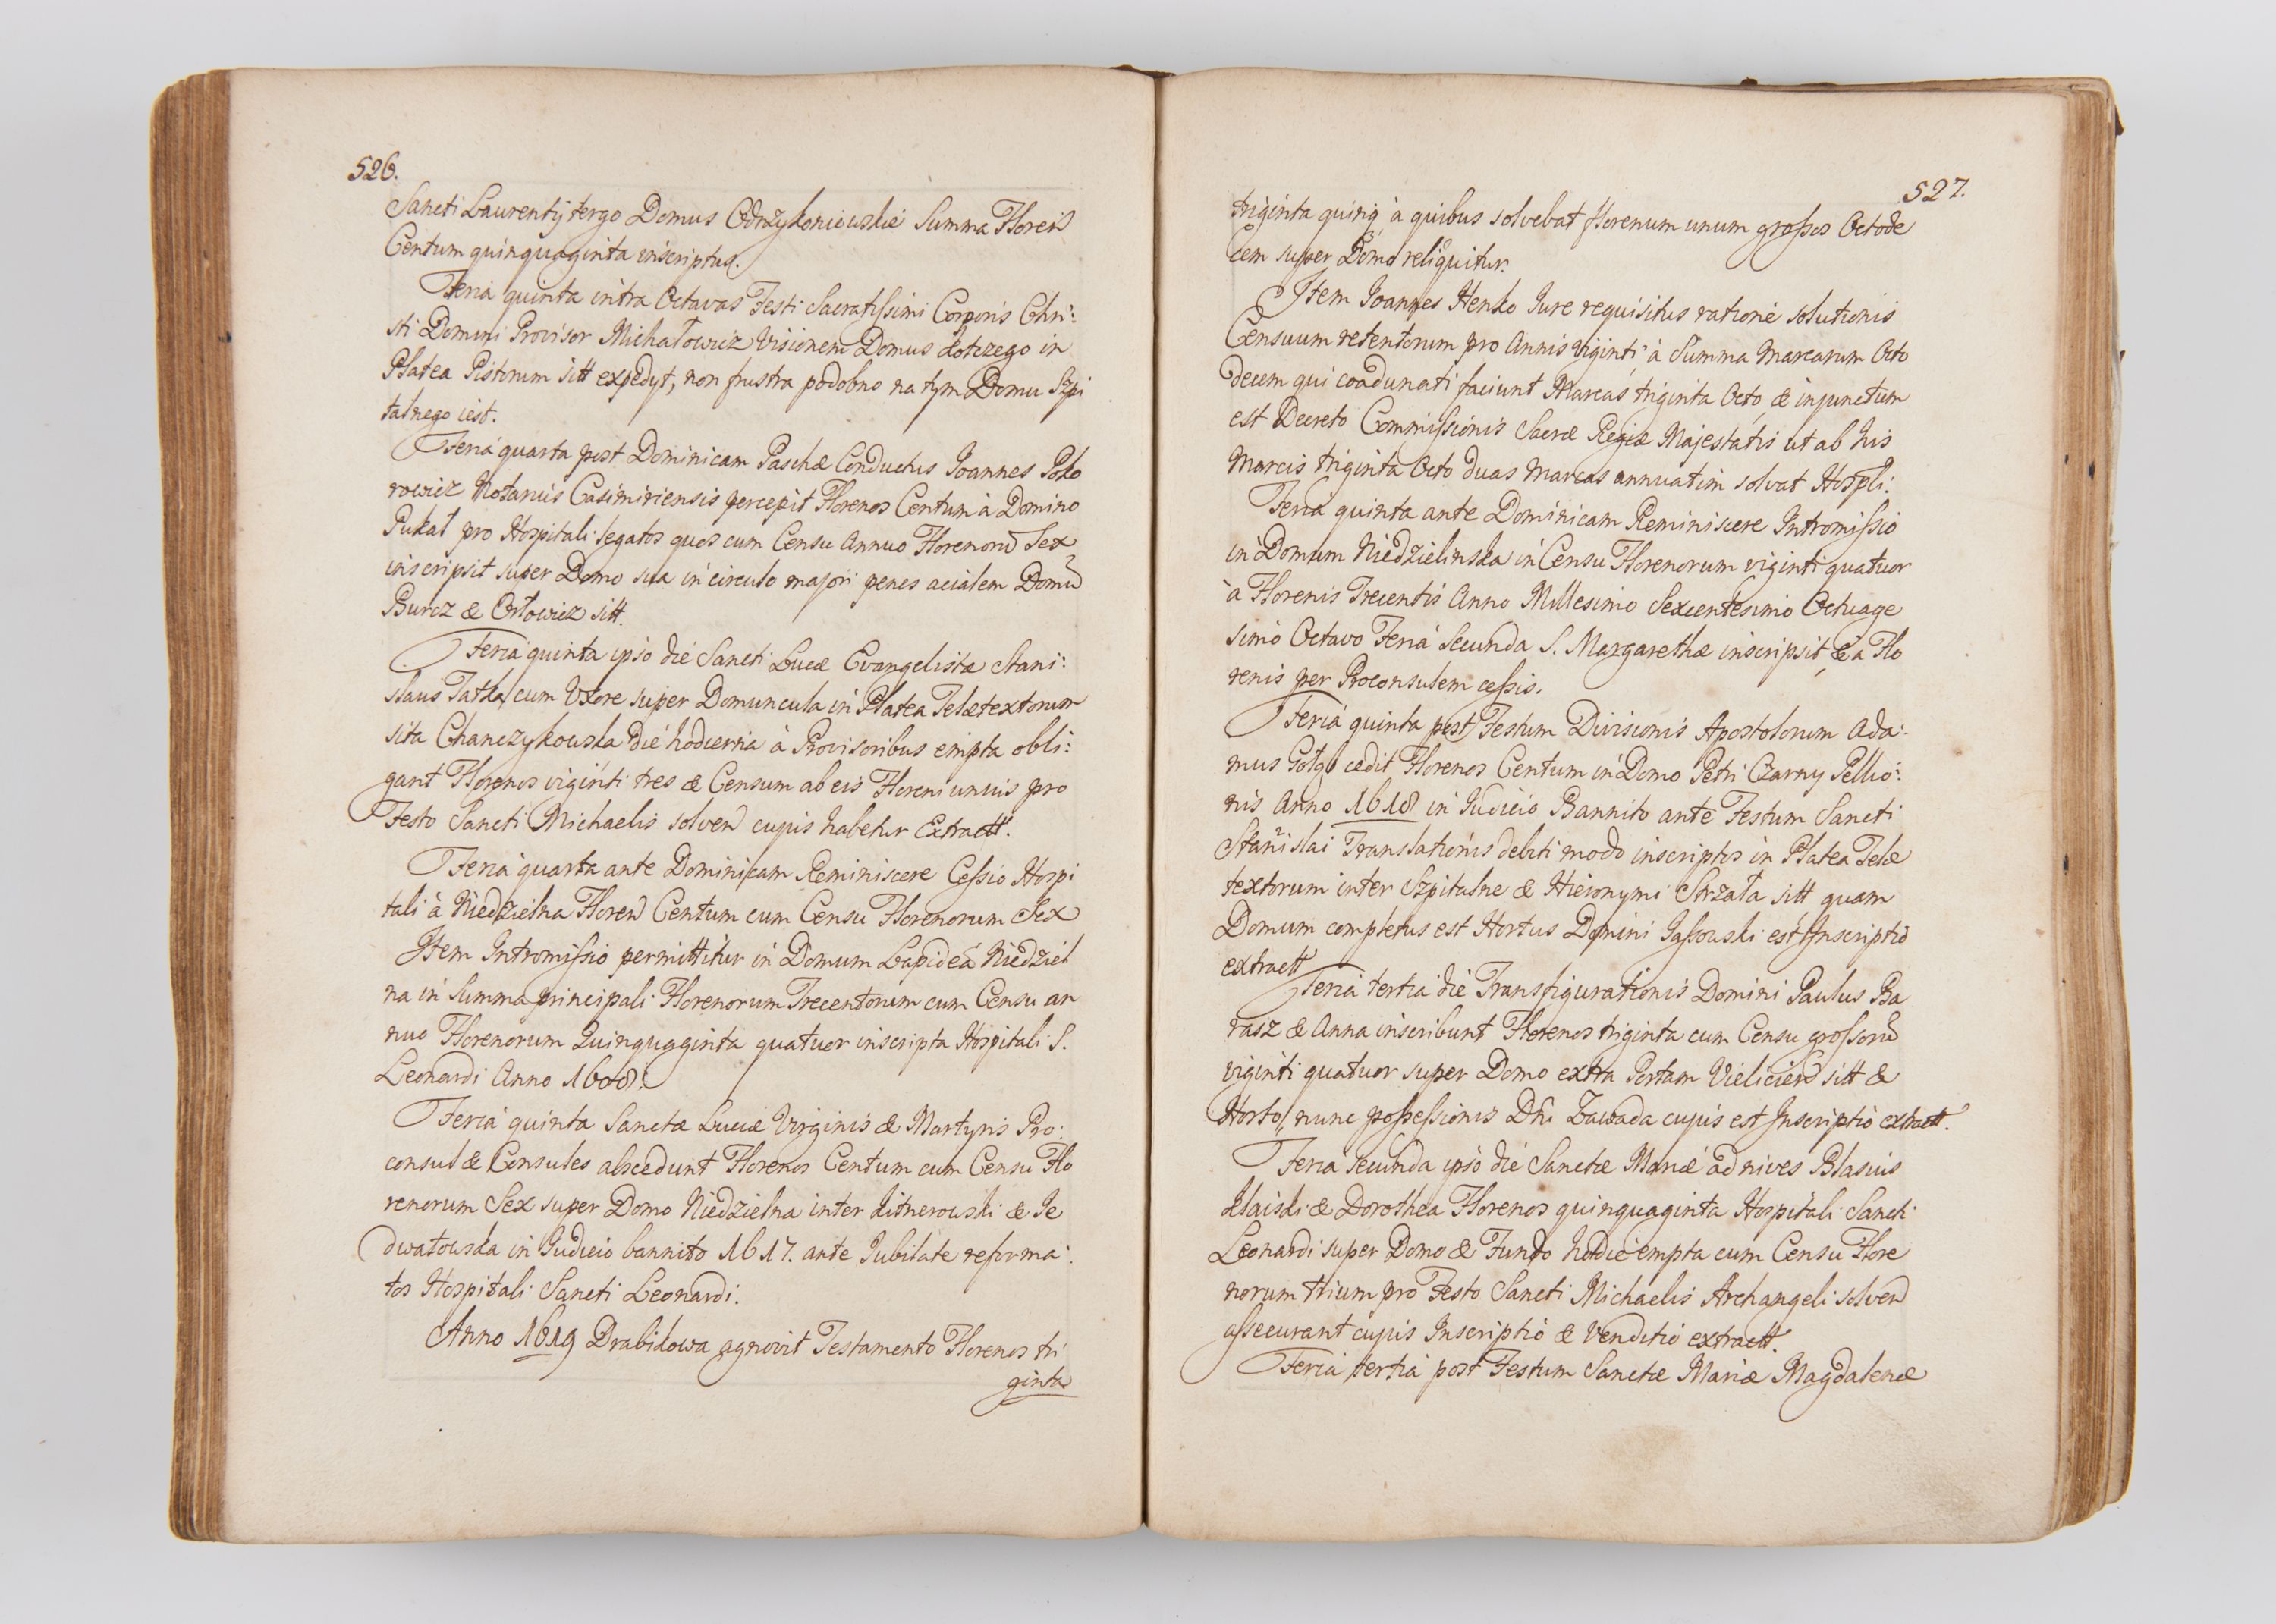 526.
Sancti Laurentij tergo Domus Odrzykoniowskie Summa Floren
Centum quinquaginta inscriptus.
Feria quinta intra Octavas Festi Sacratissimi Corporis Chri:
sti Domini Provisor Michałowicz Visionem Domus Kotczego in
Platea Pistorum sitt expedyt, non frustra podobno na tym Domu Szpi
talnego iest.
Feria quarta post Dominicam Paschæ Conductus Joannes Poko
rowicz Notarius Casimiriensis percepit Florenos Centum à Domino
Pukał pro Hospitali legatos quos cum Censu Annuo Florenorũ Sex
inscripsit super Domo sua in circulo majori penes acialem Domũ
Burcz & Orłowicz sitt.
Feria quinta ipso die Sancti Lucæ Evangelistæ Stani:
slaus Tatka cum Uxore super Domuncula in Platea Telætextorum
sita Chanczykowska die hodierna à Provisoribus empta obli:
gant Florenos viginti tres & Censum ab eis Floreni unius pro
Festo Sancti Michaelis solven cujus habetur Extractt.
Feria quarta ante Dominicam Reminiscere Cessio Hospi
tali à Niedzielna Floren Centum cum Censu Florenorum Sex
Item Intromissio permittitur in Domum Lapideã Niedziel
na in Summa principali Florenorum Trecentorum cum Censu an
nuo Florenorum Quinquaginta quatuor inscripta Hospitali S.
Leonardi Anno 1608.
Feria quinta Sanctæ Luciæ Virginis & Martyris Pro:
consul & Consules abscedunt Florenos Centum cum Censu Flo
renorum Sex super Domo Niedzielna inter Kitnerowski & Je
dwatowska in Judicio bannito 1617. ante Jubilate reforma:
tos Hospitali Sancti Leonardi.
Anno 1619 Drabikowa agnovit Testamento Florenos tri
ginta
527.
triginta quinq̃ à quibus solvebat florenum unum grossos Octode
cem super Domo reliquitur.
Item Joannes Henko Jure requisitus ratione solutionis
Censuum retentorum pro Annis viginti à Summa Marcarum Octo
decem qui coadunati faciunt Marcas triginta Octo & injunctum
est Decreto Commissionis Sacræ Regiæ Majestatis ut ab his
Marcis triginta Octo duas Marcas annuatim solvat Hospli:
Feria quinta ante Dominicam Reminiscere Intromissio
in Domum Niedzielinska in Censu Florenorum viginti quatuor
à Florenis Trecentis Anno Millesimo Sexcentesimo Octuage
simo Octavo Feria Secunda S. Margarethæ inscripsit, & a Flo
renis per Proconsulem cessis.
Feria quinta post Festum Divisionis Apostolorum Ada:
mus Gołgo cedit Florenos Centum in Domo Petri Czarny Pellio:
nis Anno 1618 in Judicio Bannito ante Festum Sancti
Stanislai Translationis debiti modo inscriptos in Platea Telæ
textorum inter Szpitalne & Hieronymi Strzała sitt quam
Domum completus est Hortus Domini Gassowski est Inscriptio
extractt
Feria tertia die Transfigurationis Domini Paulus Ba
rasz & Anna inscribunt Florenos triginta cum Censu grossorũ
viginti quatuor super Domo extra Portam Vielicien sitt &
Horto, nunc possessionis Dñi Zawada cujus est Inscriptio extractt.
Feria Secunda ipso die Sanctæ Mariæ ad nives Blasius
Klaiski & Dorothea Florenos quinquaginta Hospitali Sancti
Leonardi super Domo & Fundo hodie empta cum Censu Flore
norum trium pro Festo Sancti Michaelis Archangeli solven
assecurant cujus Inscriptio & Venditio extractt.
Feria tertia post Festum Sanctæ Mariæ Magdalenæ